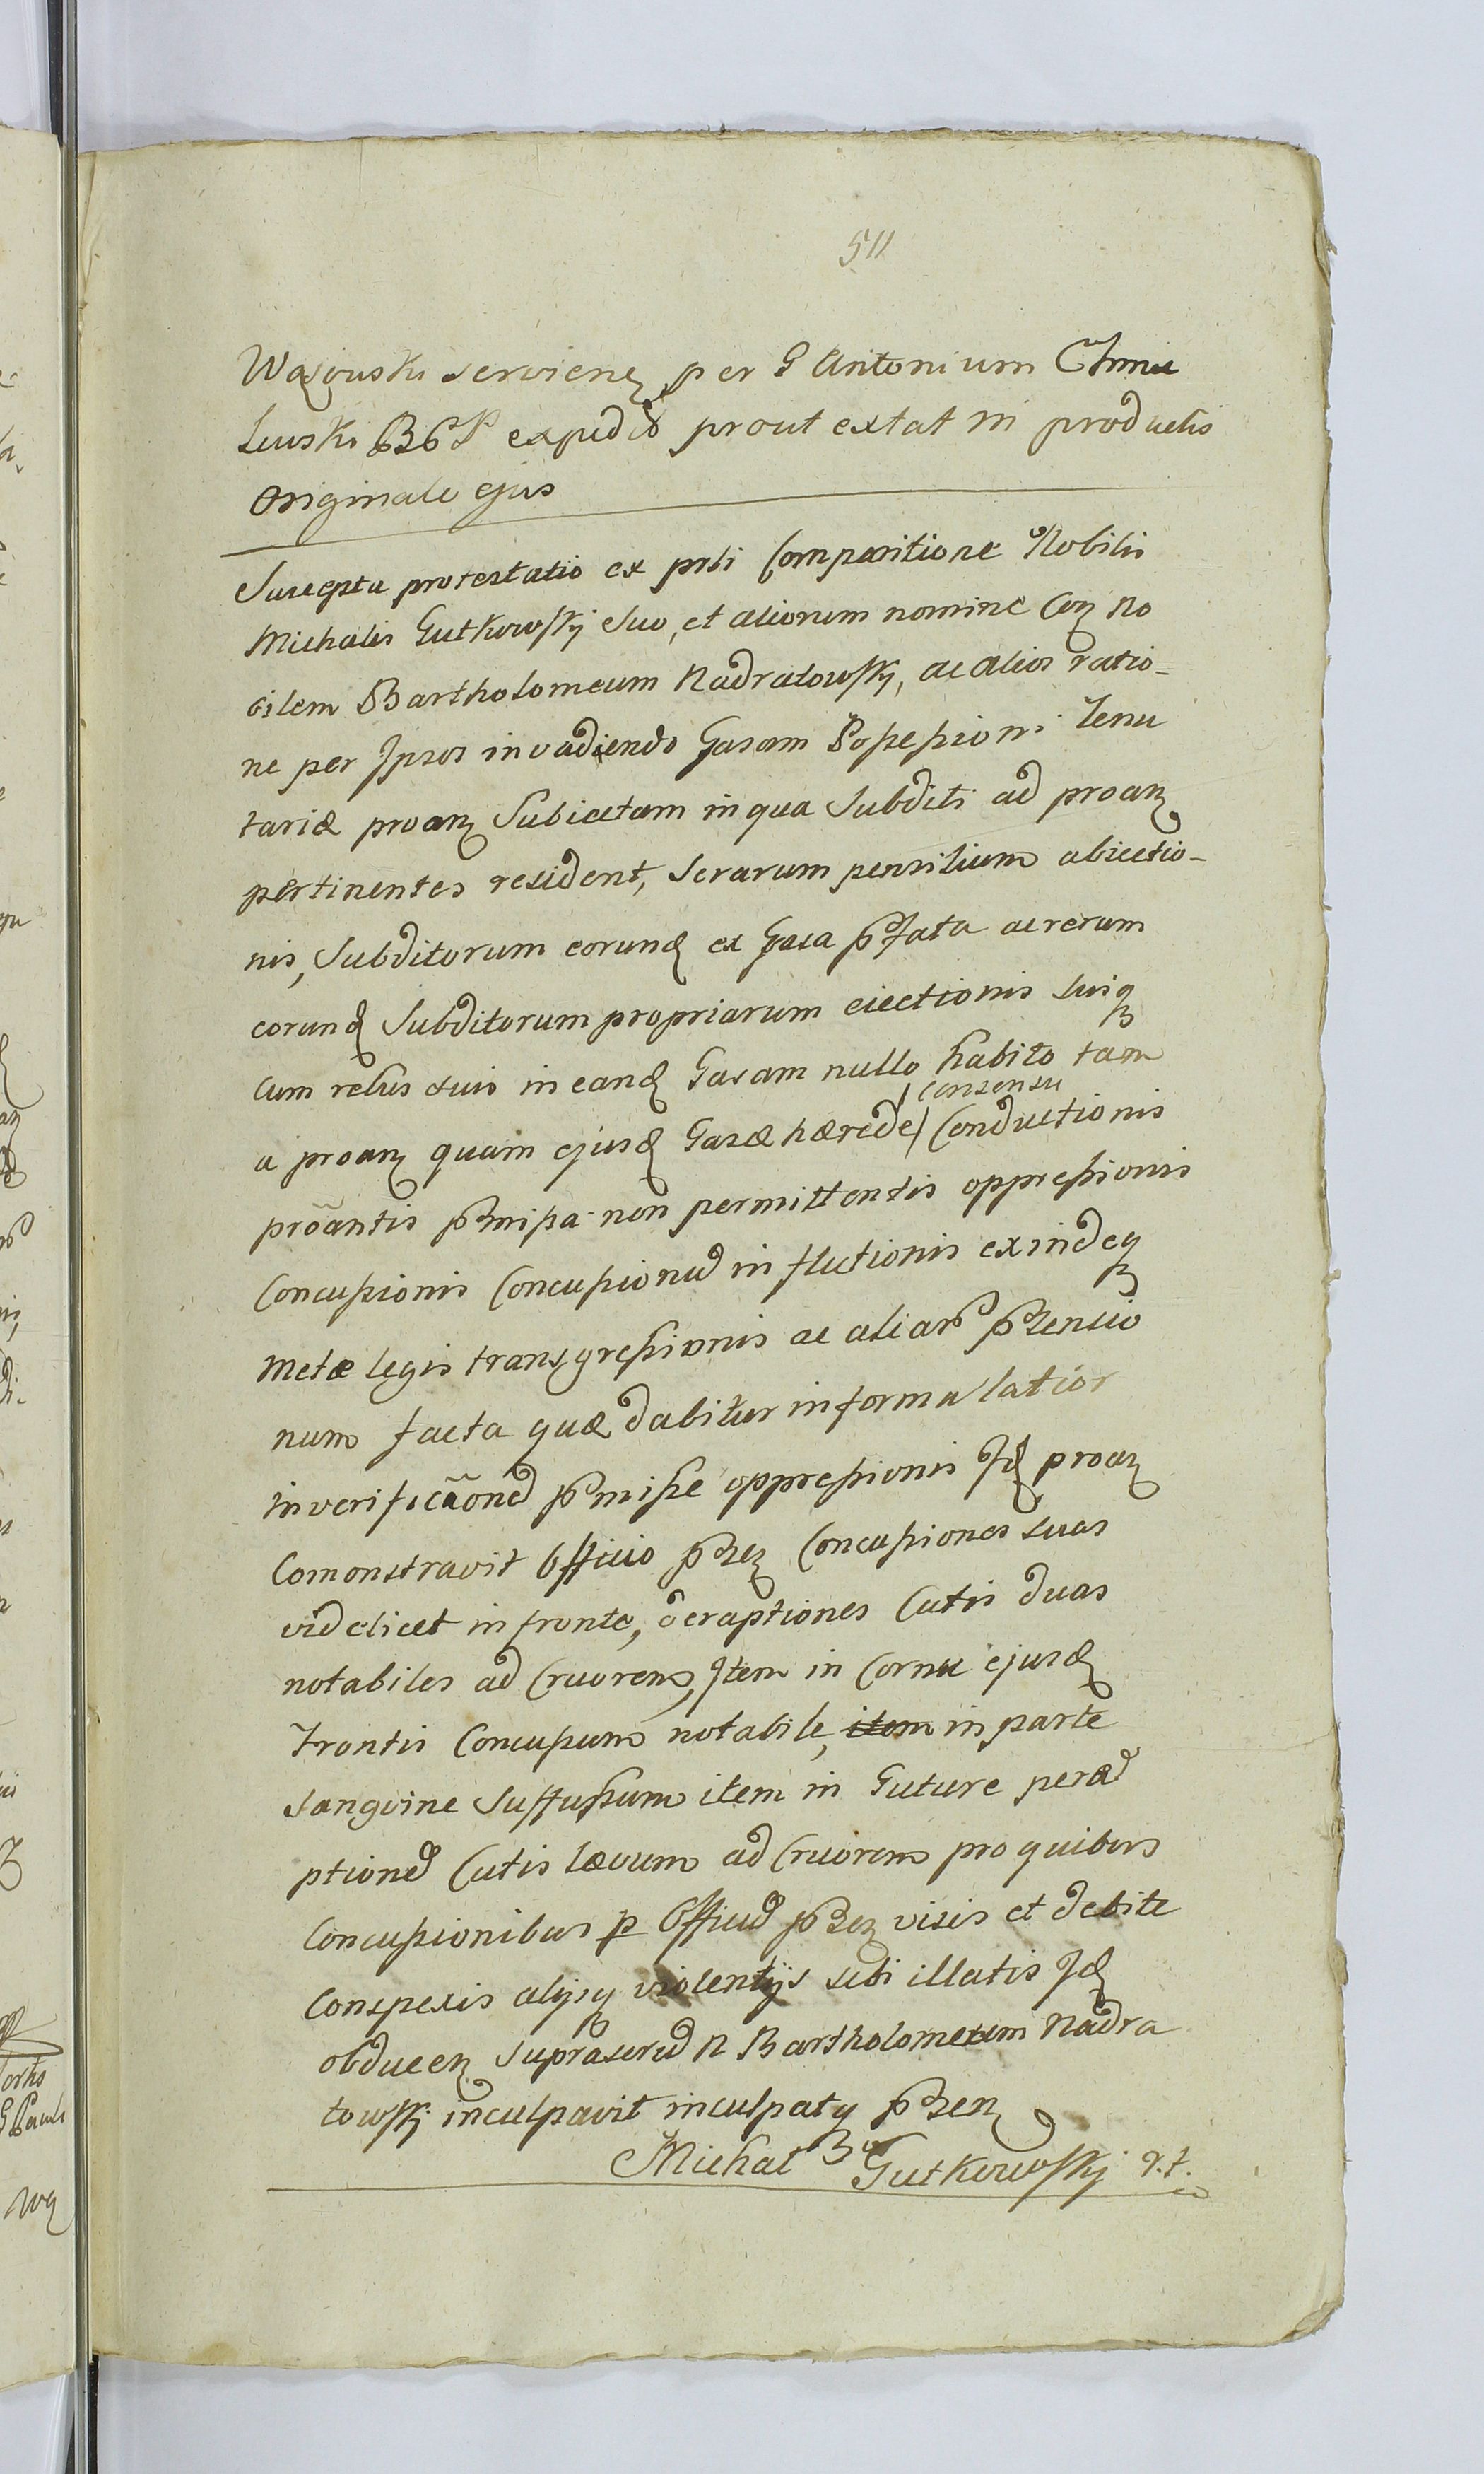 511
Wasowski servienz per G Antonium Chmie
lewski BGP expedito prout extat in productis
Originale ejus
Suscepta protestatio ex prsti Comparitione Nobilis
Michalis Gutkowskj suo, et aliorum nomine Con No
bilem Bartholomeum Nadratowskj, ac alios ratio-
ne per Ipsos invadiendo Casam Possessioni Tenu
tariæ proanz Subiectam in qua Subditi ad proanz
pertinentes resident, Serarum pensilium abiectio-
nis, Subditorum eorund ex Casa pfata ac rerum
eorund Subditorum propriarum eiectionis suiq
cum rebus suis in eand Casam nullo habito tam
consensu
a proanz quam ejusd Casæ hærede Conductionis
proãntis pmissa non permittentis oppressionis
Concussionis Concussionu inflictionis exindeq
metæ legis transgressionis ac aliar ptensio
num facta quæ dabitur in forma latior
in verificãone pmisse oppressionis Id proanz
Comonstravit Officio psenz Concussiones suas
videlicet in fronte, deraptiones Cutis duas
notabiles ad Cruorem, Item in Cornu ejusd
Frontis Concussum notabile, item in parte
Sangvine Suffussum item in Guture pera
ptione Cutis lævum ad Cruorem pro quibus
Concussionibus p Officiu psenz visis et debite
Conspexis alijsq violentijs sibi illatis Id
obducenz suprascriu N Bartholomeum Nadra
towskj inculpavit inculpatq psenz
Michał Gutkowskj